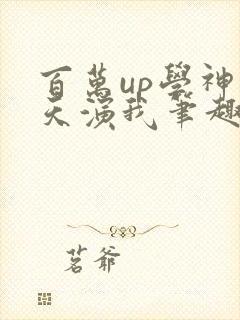 百萬up學神
天演我筆趣
茗爺